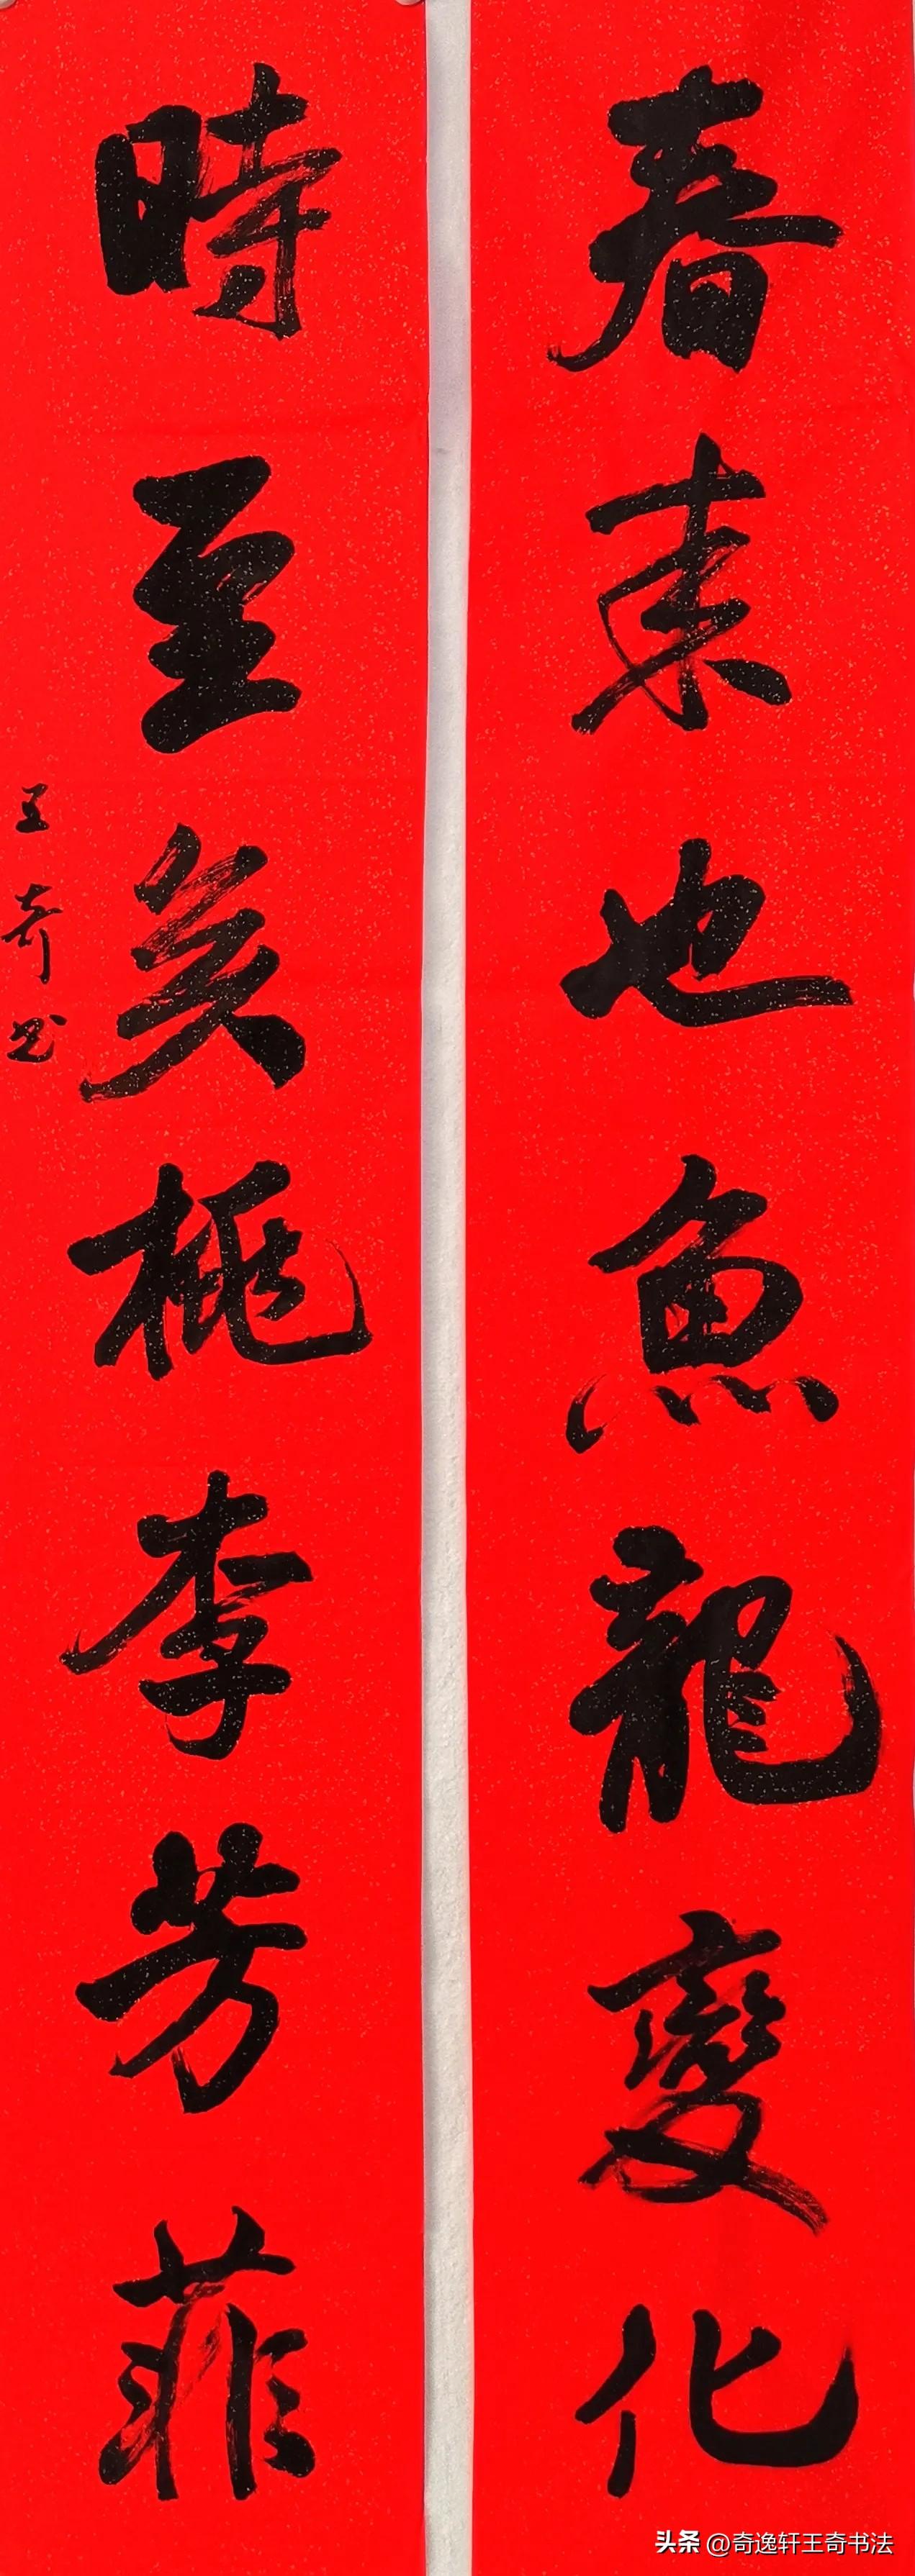 春来也魚龍變化
時至矣桃李芳菲
王奇书
头条 @奇逸轩王奇书法